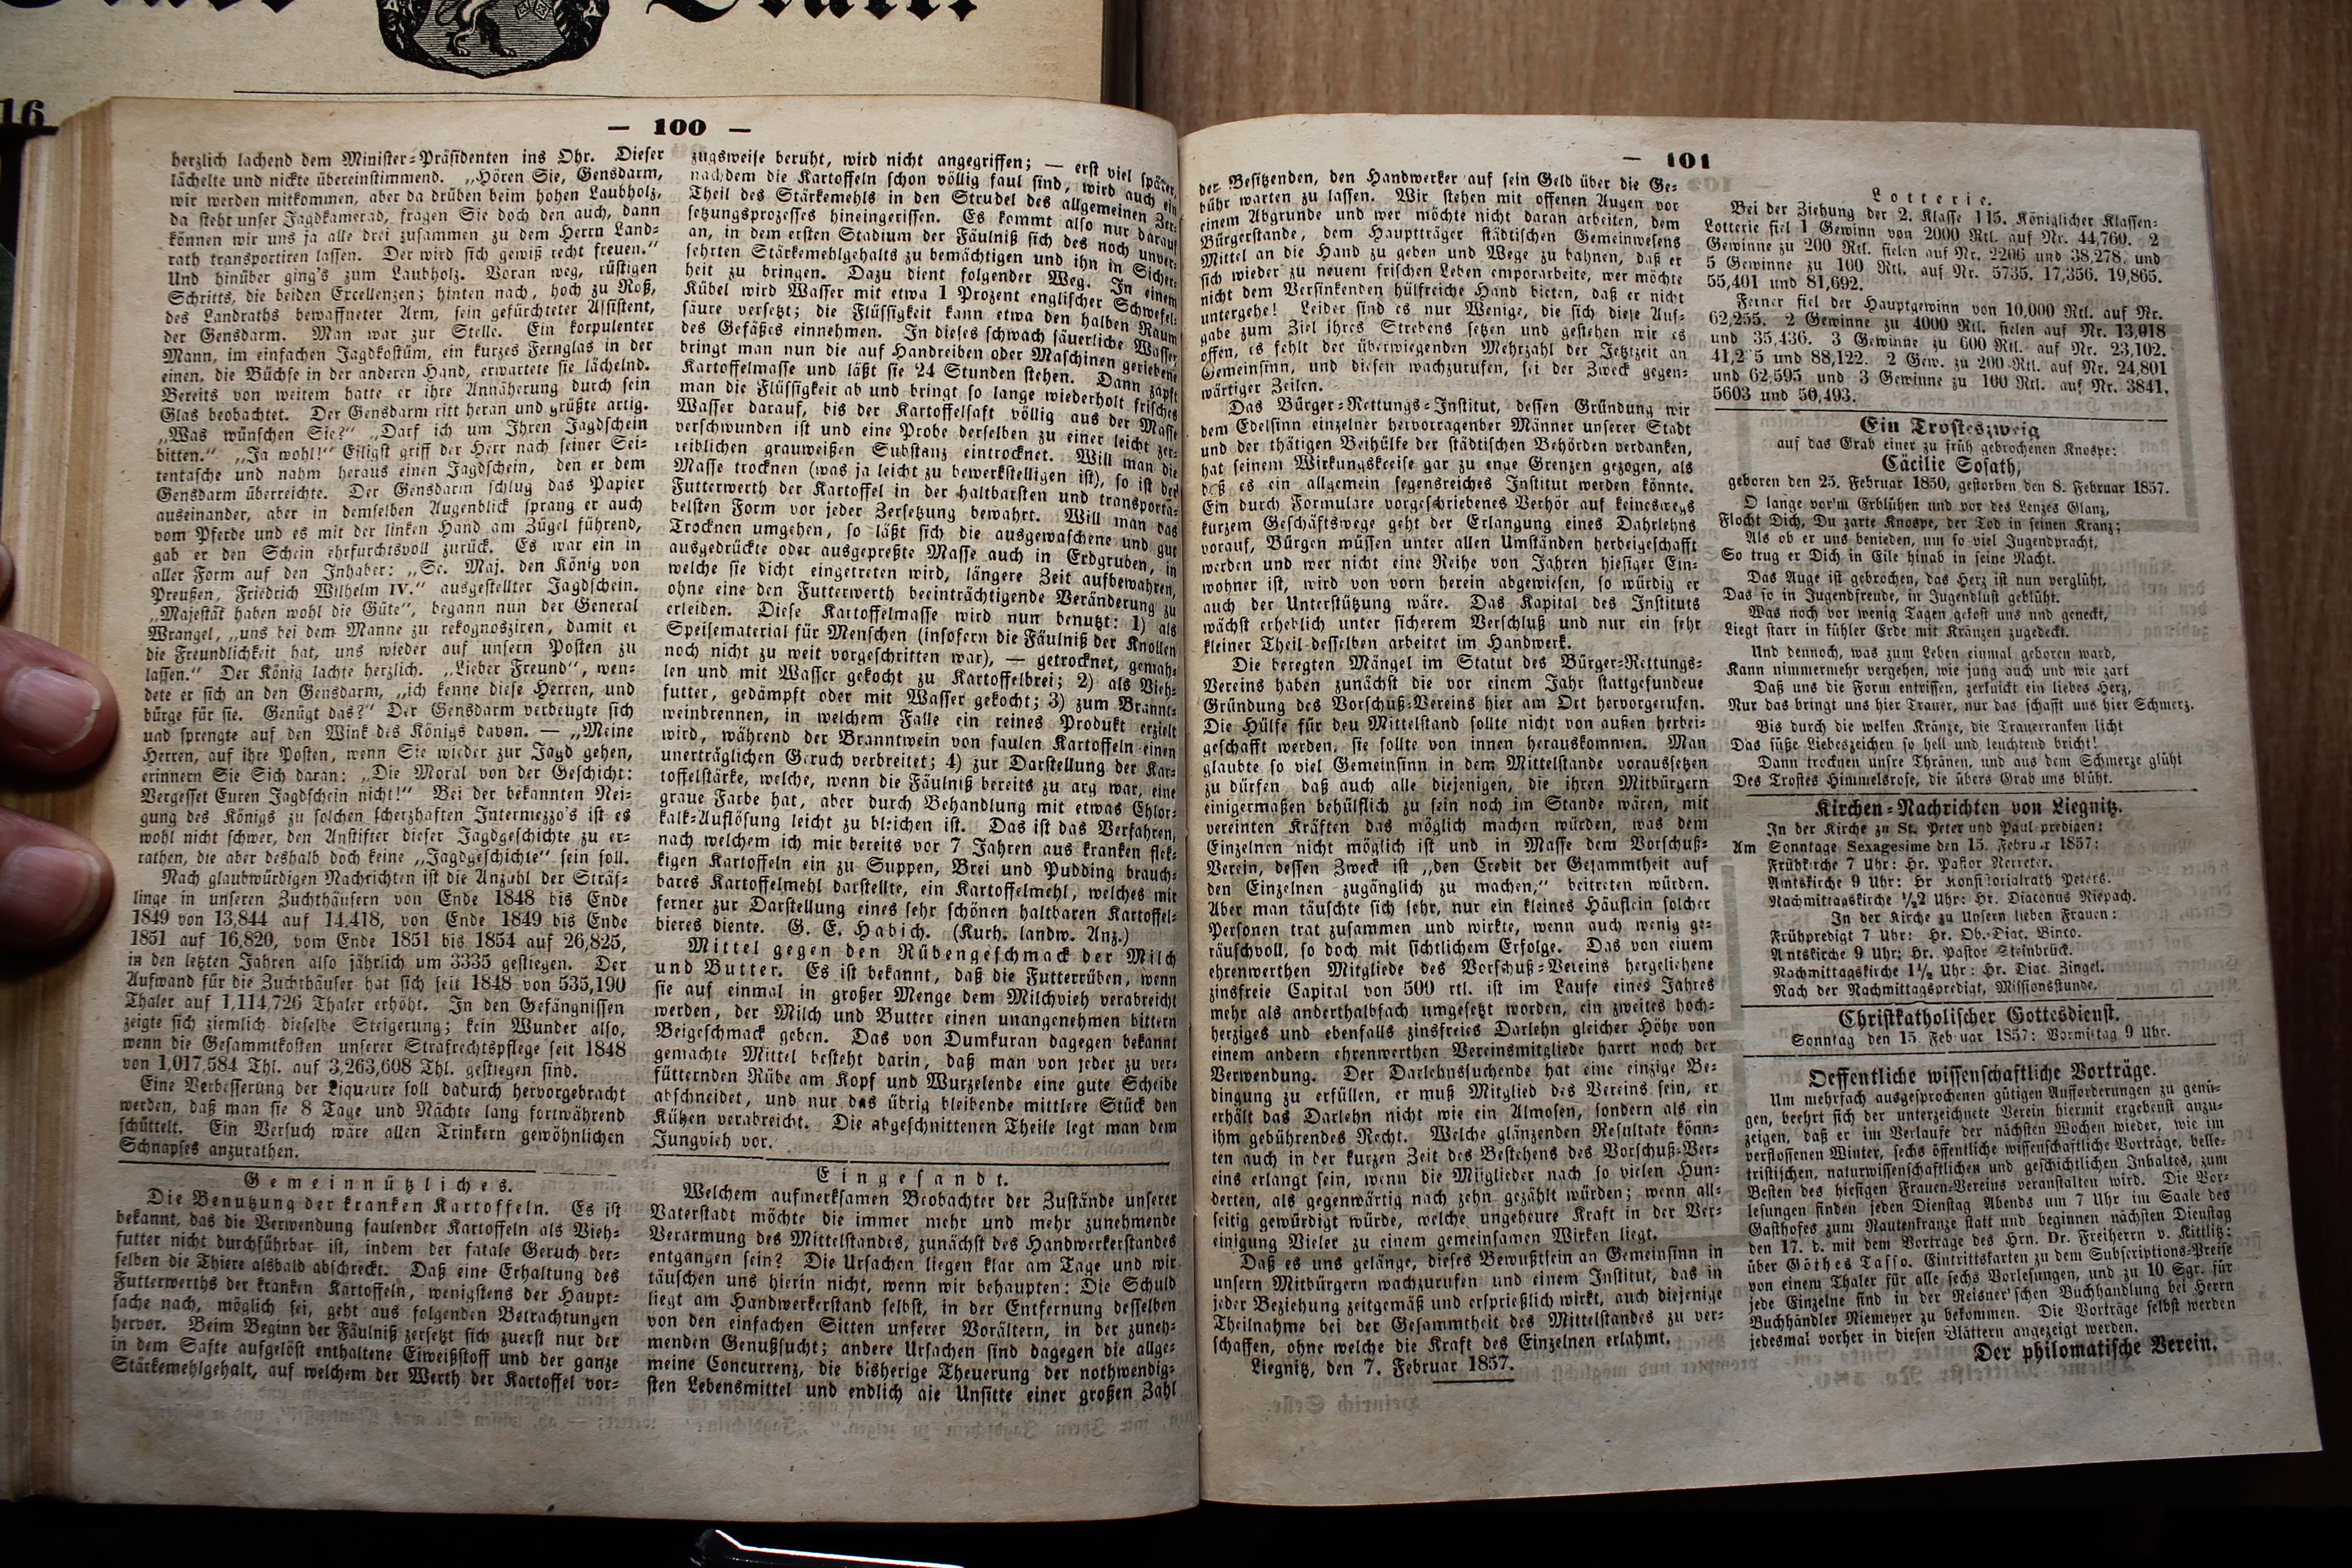 16
— 100 —
herzlich lachend dem Minister-Präsidenten ins Ohr. Dieser
lächelte und nickte übereinstimmend. „Hören Sie, Gensdarm,
wir werden mitkommen, aber da drüben beim hohen Laubholz,
da steht unser Jagdkamerad, fragen Sie doch den auch, dann
können wir uns ja alle drei zusammen zu dem Herrn Land-
rath transportiren lassen. Der wird sich gewiß recht freuen.“
Und hinüber ging's zum Laubholz. Voran weg, rüstigen
Schritts, die beiden Excellenzen; hinten nach, hoch zu Roß,
des Landraths bewaffneter Arm, sein gefürchteter Assistent,
der Gensdarm. Man war zur Stelle. Ein korpulenter
Mann, im einfachen Jagdkostüm, ein kurzes Fernglas in der
einen, die Büchse in der anderen Hand, erwartete sie lächelnd.
Bereits von weitem hatte er ihre Annäherung durch sein
Glas beobachtet. Der Gensdarm ritt heran und grüßte artig.
„Was wünschen Sie?“ „Darf ich um Ihren Jagdschein
bitten.“ „Ja wohl!“ Eiligst griff der Herr nach seiner Sei-
tentasche und nahm heraus einen Jagdschein, den er dem
Gensdarm überreichte. Der Gensdarm schlug das Papier
auseinander, aber in demselben Augenblick sprang er auch
vom Pferde und es mit der linken Hand am Zügel führend,
gab er den Schein ehrfurchtsvoll zurück. Es war ein in
aller Form auf den Inhaber: „Se. Maj. den König von
Preußen, Friedrich Wilhelm IV.“ ausgestellter Jagdschein.
„Majestät haben wohl die Güte“, begann nun der General
Wrangel, „uns bei dem Manne zu rekognosziren, damit er
die Freundlichkeit hat, uns wieder auf unsern Posten zu
lassen.“ Der König lachte herzlich. „Lieber Freund“, wen-
dete er sich an den Gensdarm, „ich kenne diese Herren, und
bürge für sie. Genügt das?“ Der Gensdarm verbeugte sich
und sprengte auf den Wink des Königs davon. — „Meine
Herren, auf ihre Posten, wenn Sie wieder zur Jagd gehen,
erinnern Sie Sich daran: „Die Moral von der Geschicht:
Vergesset Euren Jagdschein nicht!“ Bei der bekannten Nei-
gung des Königs zu solchen scherzhaften Intermezzo's ist es
wohl nicht schwer, den Anstifter dieser Jagdgeschichte zu er-
rathen, die aber deshalb doch keine „Jagdgeschichte“ sein soll.
Nach glaubwürdigen Nachrichten ist die Anzahl der Sträf-
linge in unseren Zuchthäusern von Ende 1848 bis Ende
1849 von 13,844 auf 14,418, von Ende 1849 bis Ende
1851 auf 16,820, vom Ende 1851 bis 1854 auf 26,825,
in den letzten Jahren also jährlich um 3335 gestiegen. Der
Aufwand für die Zuchthäuser hat sich seit 1848 von 535,190
Thaler auf 1,114,726 Thaler erhöht. In den Gefängnissen
zeigte sich ziemlich dieselbe Steigerung; kein Wunder also,
wenn die Gesammtkosten unserer Strafrechtspflege seit 1848
von 1,017,584 Thl. auf 3,263,608 Thl. gestiegen sind.
Eine Verbesserung der Liqueure soll dadurch hervorgebracht
werden, daß man sie 8 Tage und Nächte lang fortwährend
schüttelt. Ein Versuch wäre allen Trinkern gewöhnlichen
Schnapses anzurathen.
Gemeinnützliches.
Die Benutzung der kranken Kartoffeln. Es ist
bekannt, das die Verwendung faulender Kartoffeln als Vieh-
futter nicht durchführbar ist, indem der fatale Geruch der-
selben die Thiere alsbald abschreckt. Daß eine Erhaltung des
Futterwerths der kranken Kartoffeln, wenigstens der Haupt-
sache nach, möglich sei, geht aus folgenden Betrachtungen
hervor. Beim Beginn der Fäulniß zersetzt sich zuerst nur der
in dem Safte aufgelöst enthaltene Eiweißstoff und der ganze
Stärkemehlgehalt, auf welchem der Werth der Kartoffel vor-
zugsweise beruht, wird nicht angegriffen; — erst viel später,
nachdem die Kartoffeln schon völlig faul sind, wird auch ein
Theil des Stärkemehls in den Strudel des allgemeinen Zer-
setzungsprozesses hineingerissen. Es kommt also nur darauf
an, in dem ersten Stadium der Fäulniß sich des noch unver-
sehrten Stärkemehlgehalts zu bemächtigen und ihn in Sicher-
heit zu bringen. Dazu dient folgender Weg. In einem
Kübel wird Wasser mit etwa 1 Prozent englischer Schwefel-
säure versetzt; die Flüssigkeit kann etwa den halben Raum
des Gefäßes einnehmen. In dieses schwach säuerliche Wasser
bringt man nun die auf Handreiben oder Maschinen geriebene
Kartoffelmasse und läßt sie 24 Stunden stehen. Dann zapft
man die Flüssigkeit ab und bringt so lange wiederholt frisches
Wasser darauf, bis der Kartoffelsaft völlig aus der Masse
verschwunden ist und eine Probe derselben zu einer leicht zer-
reiblichen grauweißen Substanz eintrocknet. Will man die
Masse trocknen (was ja leicht zu bewerkstelligen ist), so ist der
Futterwerth der Kartoffel in der haltbarsten und transporta-
belsten Form vor jeder Zersetzung bewahrt. Will man das
Trocknen umgehen, so läßt sich die ausgewaschene und gut
ausgedrückte oder ausgepreßte Masse auch in Erdgruben, in
welche sie dicht eingetreten wird, längere Zeit aufbewahren,
ohne eine den Futterwerth beeinträchtigende Veränderung zu
erleiden. Diese Kartoffelmasse wird nun benutzt: 1) als
Speisematerial für Menschen (insofern die Fäulniß der Knollen
noch nicht zu weit vorgeschritten war), — getrocknet, gemah-
len und mit Wasser gekocht zu Kartoffelbrei; 2) als Vieh-
futter, gedämpft oder mit Wasser gekocht; 3) zum Brannt-
weinbrennen, in welchem Falle ein reines Produkt erzielt
wird, während der Branntwein von faulen Kartoffeln einen
unerträglichen Geruch verbreitet; 4) zur Darstellung der Kar-
toffelstärke, welche, wenn die Fäulniß bereits zu arg war, eine
graue Farbe hat, aber durch Behandlung mit etwas Chlor-
kalk-Auflösung leicht zu bleichen ist. Das ist das Verfahren,
nach welchem ich mir bereits vor 7 Jahren aus kranken flek-
kigen Kartoffeln ein zu Suppen, Brei und Pudding brauch-
bares Kartoffelmehl darstellte, ein Kartoffelmehl, welches mir
ferner zur Darstellung eines sehr schönen haltbaren Kartoffel-
bieres diente. G. E. Habich. (Kurh. landw. Anz.)
Mittel gegen den Rübengeschmack der Milch
und Butter. Es ist bekannt, daß die Futterrüben, wenn
sie auf einmal in großer Menge dem Milchvieh verabreicht
werden, der Milch und Butter einen unangenehmen bittern
Beigeschmack geben. Das von Dumkuran dagegen bekannt
gemachte Mittel besteht darin, daß man von jeder zu ver-
fütternden Rübe am Kopf und Wurzelende eine gute Scheibe
abschneidet, und nur das übrig bleibende mittlere Stück den
Kühen verabreicht. Die abgeschnittenen Theile legt man dem
Jungvieh vor.
Eingesandt.
Welchem aufmerksamen Beobachter der Zustände unserer
Vaterstadt möchte die immer mehr und mehr zunehmende
Verarmung des Mittelstandes, zunächst des Handwerkerstandes
entgangen sein? Die Ursachen liegen klar am Tage und wir
täuschen uns hierin nicht, wenn wir behaupten: Die Schuld
liegt am Handwerkerstand selbst, in der Entfernung desselben
von den einfachen Sitten unserer Vorältern, in der zuneh-
menden Genußsucht; andere Ursachen sind dagegen die allge-
meine Concurrenz, die bisherige Theuerung der nothwendig-
sten Lebensmittel und endlich die Unsitte einer großen Zahl
— 101
der Besitzenden, den Handwerker auf sein Geld über die Ge-
bühr warten zu lassen. Wir stehen mit offenen Augen vor
einem Abgrunde und wer möchte nicht daran arbeiten, dem
Bürgerstande, dem Hauptträger städtischen Gemeinwesens
Mittel an die Hand zu geben und Wege zu bahnen, daß er
sich wieder zu neuem frischen Leben emporarbeite, wer möchte
nicht dem Versinkenden hülfreiche Hand bieten, daß er nicht
untergehe! Leider sind es nur Wenige, die sich diese Auf-
gabe zum Ziel ihres Strebens setzen und gestehen wir es
offen, es fehlt der überwiegenden Mehrzahl der Jetztzeit an
Gemeinsinn, und diesen wachzurufen, sei der Zweck gegen-
wärtiger Zeilen.
Das Bürger-Rettungs-Institut, dessen Gründung wir
dem Edelsinn einzelner hervorragender Männer unserer Stadt
und der thätigen Beihülfe der städtischen Behörden verdanken,
hat seinem Wirkungskreise gar zu enge Grenzen gezogen, als
daß es ein allgemein segensreiches Institut werden könnte.
Ein durch Formulare vorgeschriebenes Verhör auf keineswegs
kurzem Geschäftswege geht der Erlangung eines Dahrlehns
vorauf, Bürgen müssen unter allen Umständen herbeigeschafft
werden und wer nicht eine Reihe von Jahren hiesiger Ein-
wohner ist, wird von vorn herein abgewiesen, so würdig er
auch der Unterstützung wäre. Das Kapital des Instituts
wächst erheblich unter sicherem Verschluß und nur ein sehr
kleiner Theil desselben arbeitet im Handwerk.
Die beregten Mängel im Statut des Bürger-Rettungs-
Vereins haben zunächst die vor einem Jahr stattgefundene
Gründung des Vorschuß-Vereins hier am Ort hervorgerufen.
Die Hülfe für den Mittelstand sollte nicht von außen herbei-
geschafft werden, sie sollte von innen herauskommen. Man
glaubte so viel Gemeinsinn in dem Mittelstande voraussetzen
zu dürfen daß auch alle diejenigen, die ihren Mitbürgern
einigermaßen behülflich zu sein noch im Stande wären, mit
vereinten Kräften das möglich machen würden, was dem
Einzelnen nicht möglich ist und in Masse dem Vorschuß-
Verein, dessen Zweck ist „den Credit der Gesammtheit auf
den Einzelnen zugänglich zu machen,“ beitreten würden.
Aber man täuschte sich sehr, nur ein kleines Häuflein solcher
Personen trat zusammen und wirkte, wenn auch wenig ge-
räuschvoll, so doch mit sichtlichem Erfolge. Das von einem
ehrenwerthen Mitgliede des Vorschuß-Vereins hergeliehene
zinsfreie Capital von 500 rtl. ist im Laufe eines Jahres
mehr als anderthalbfach umgesetzt worden, ein zweites hoch-
herziges und ebenfalls zinsfreies Darlehn gleicher Höhe von
einem andern ehrenwerthen Vereinsmitgliede harrt noch der
Verwendung. Der Darlehnssuchende hat eine einzige Be-
dingung zu erfüllen, er muß Mitglied des Vereins sein, er
erhält das Darlehn nicht wie ein Almosen, sondern als ein
ihm gebührendes Recht. Welche glänzenden Resultate könn-
ten auch in der kurzen Zeit des Bestehens des Vorschuß-Ver-
eins erlangt sein, wenn die Mitglieder nach so vielen Hun-
derten, als gegenwärtig nach zehn gezählt würden; wenn all-
seitig gewürdigt würde, welche ungeheure Kraft in der Ver-
einigung Vieler zu einem gemeinsamen Wirken liegt.
Daß es uns gelänge, dieses Bewußtsein an Gemeinsinn in
unsern Mitbürgern wachzurufen und einem Institut, das in
jeder Beziehung zeitgemäß und ersprießlich wirkt, auch diejenige
Theilnahme bei der Gesammtheit des Mittelstandes zu ver-
schaffen, ohne welche die Kraft des Einzelnen erlahmt.
Liegnitz, den 7. Februar 1857.
Lotterie.
Bei der Ziehung der 2. Klasse 115. Königlicher Klassen-
Lotterie fiel 1 Gewinn von 2000 Rtl. auf Nr. 44,760. 2
Gewinne zu 200 Rtl. fielen auf Nr. 2206 und 38,278, und
5 Gewinne zu 100 Rtl. auf Nr. 5735. 17,356. 19,865.
55,401 und 81,692.
Ferner fiel der Hauptgewinn von 10,000 Rtl. auf Nr.
62,255. 2 Gewinne zu 4000 Rtl. fielen auf Nr. 13,018
und 35,436. 3 Gewinne zu 600 Rtl. auf Nr. 23,102.
und 88,122. 2 Gew. zu 200 Rtl. auf Nr. 24,801
und 62,595 und 3 Gewinne zu 100 Rtl. auf Nr. 3841.
5603 und 50,493.
Ein Trosteszweig
auf das Grab einer zu früh gebrochenen Knospe:
Cäcilie Sosath,
geboren den 25. Februar 1850, gestorben den 8. Februar 1857.
O lange vor'm Erblühen und vor des Lenzes Glanz,
Flocht Dich, Du zarte Knospe, der Tod in seinen Kranz;
Als ob er uns benieden, um so viel Jugendpracht,
So trug er Dich in Eile hinab in seine Nacht.
Das Auge ist gebrochen, das Herz ist nun verglüht,
Das so in Jugendfreude, in Jugendlust geblüht.
Was noch vor wenig Tagen gekost uns und geneckt,
Liegt starr in kühler Erde mit Kränzen zugedeckt.
Und dennoch, was zum Leben einmal geboren ward,
Kann nimmermehr vergehen, wie jung auch und wie zart
Daß uns die Form entrissen, zerknickt ein liebes Herz,
Nur das bringt uns hier Trauer, nur das schafft uns hier Schmerz.
Bis durch die welken Kränze, die Trauerranken licht
Das süße Liebeszeichen so hell und leuchtend bricht!
Dann trocknen unsre Thränen, und aus dem Schmerze glüht
Des Trostes Himmelsrose, die übers Grab uns blüht.
Kirchen-Nachrichten von Liegnitz.
In der Kirche zu St. Peter und Paul predigen:
Am Sonntage Sexagesime den 15. Februar 1857:
Frühkirche 7 Uhr: Hr. Pastor Nerreter.
Amtskirche 9 Uhr: Hr Konsistorialrath Peters.
Nachmittagskirche ½2 Uhr: Hr. Diaconus Riepach.
In der Kirche zu Unsern lieben Frauen:
Frühpredigt 7 Uhr: Hr. Ob.-Diac. Binco.
Amtskirche 9 Uhr: Hr. Pastor Steinbrück.
Nachmittagskirche 1½ Uhr: Hr. Diac. Zingel.
Nach der Nachmittagspredigt, Missionsstunde.
Christkatholischer Gottesdienst.
Sonntag den 15. Februar 1857: Vormittag 9 Uhr.
Oeffentliche wissenschaftliche Vorträge.
Um mehrfach ausgesprochenen gütigen Aufforderungen zu genü-
gen, beehrt sich der unterzeichnete Verein hiermit ergebenst anzu-
zeigen, daß er im Verlaufe der nächsten Wochen wieder, wie im
verflossenen Winter, sechs öffentliche wissenschaftliche Vorträge, belle-
tristischen, naturwissenschaftlichen und geschichtlichen Inhaltes, zum
Besten des hiesigen Frauen-Vereins veranstalten wird. Die Vor-
lesungen finden jeden Dienstag Abends um 7 Uhr im Saale des
Gasthofes zum Rautenkranze statt und beginnen nächsten Dienstag
den 17. d. mit dem Vortrage des Hrn. Dr. Freiherrn v. Kittlitz:
über Göthes Tasso. Eintrittskarten zu dem Subscriptions-Preise
von einem Thaler für alle sechs Vorlesungen, und zu 10 Sgr. für
jede Einzelne sind in der Reisner'schen Buchhandlung bei Herrn
Buchhändler Niemeyer zu bekommen. Die Vorträge selbst werden
jedesmal vorher in diesen Blättern angezeigt werden.
Der philomatische Verein.